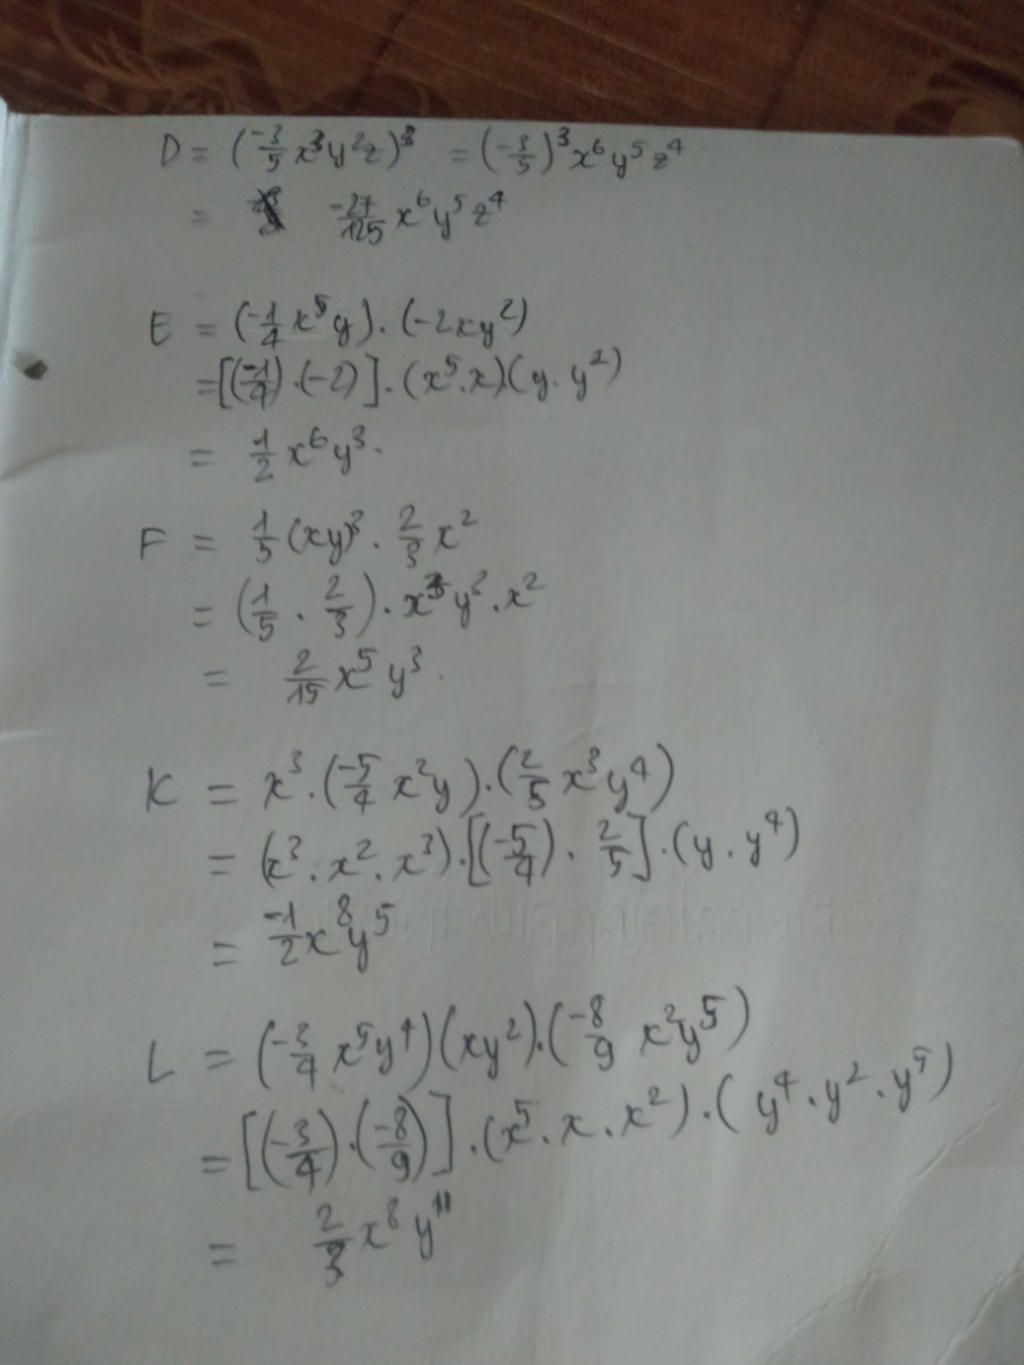 D = (-3/5 x³y²z)³ = (-3/5)³x⁶y⁵z⁴
= -27/125 x⁶y⁵z⁴
E = (-1/4 x⁵y).(-2xy²)
= [(-1/4).(-2)].(x⁵.x)(y.y²)
= 1/2 x⁶y³.
F = 1/5 (xy)³. 2/3 x²
= (1/5 . 2/3). x³y³.x²
= 2/15 x⁵y³.
K = x³.(-5/4 x²y).(2/5 x³y⁴)
= (x³.x².x³).[(-5/4). 2/5].(y.y⁴)
= -1/2 x⁸y⁵
L = (-3/4 x⁵y⁴)(xy²).(-8/9 x²y⁵)
= [(-3/4).(-8/9)].(x⁵.x.x²).(y⁴.y².y⁵)
= 2/3 x⁸y¹¹